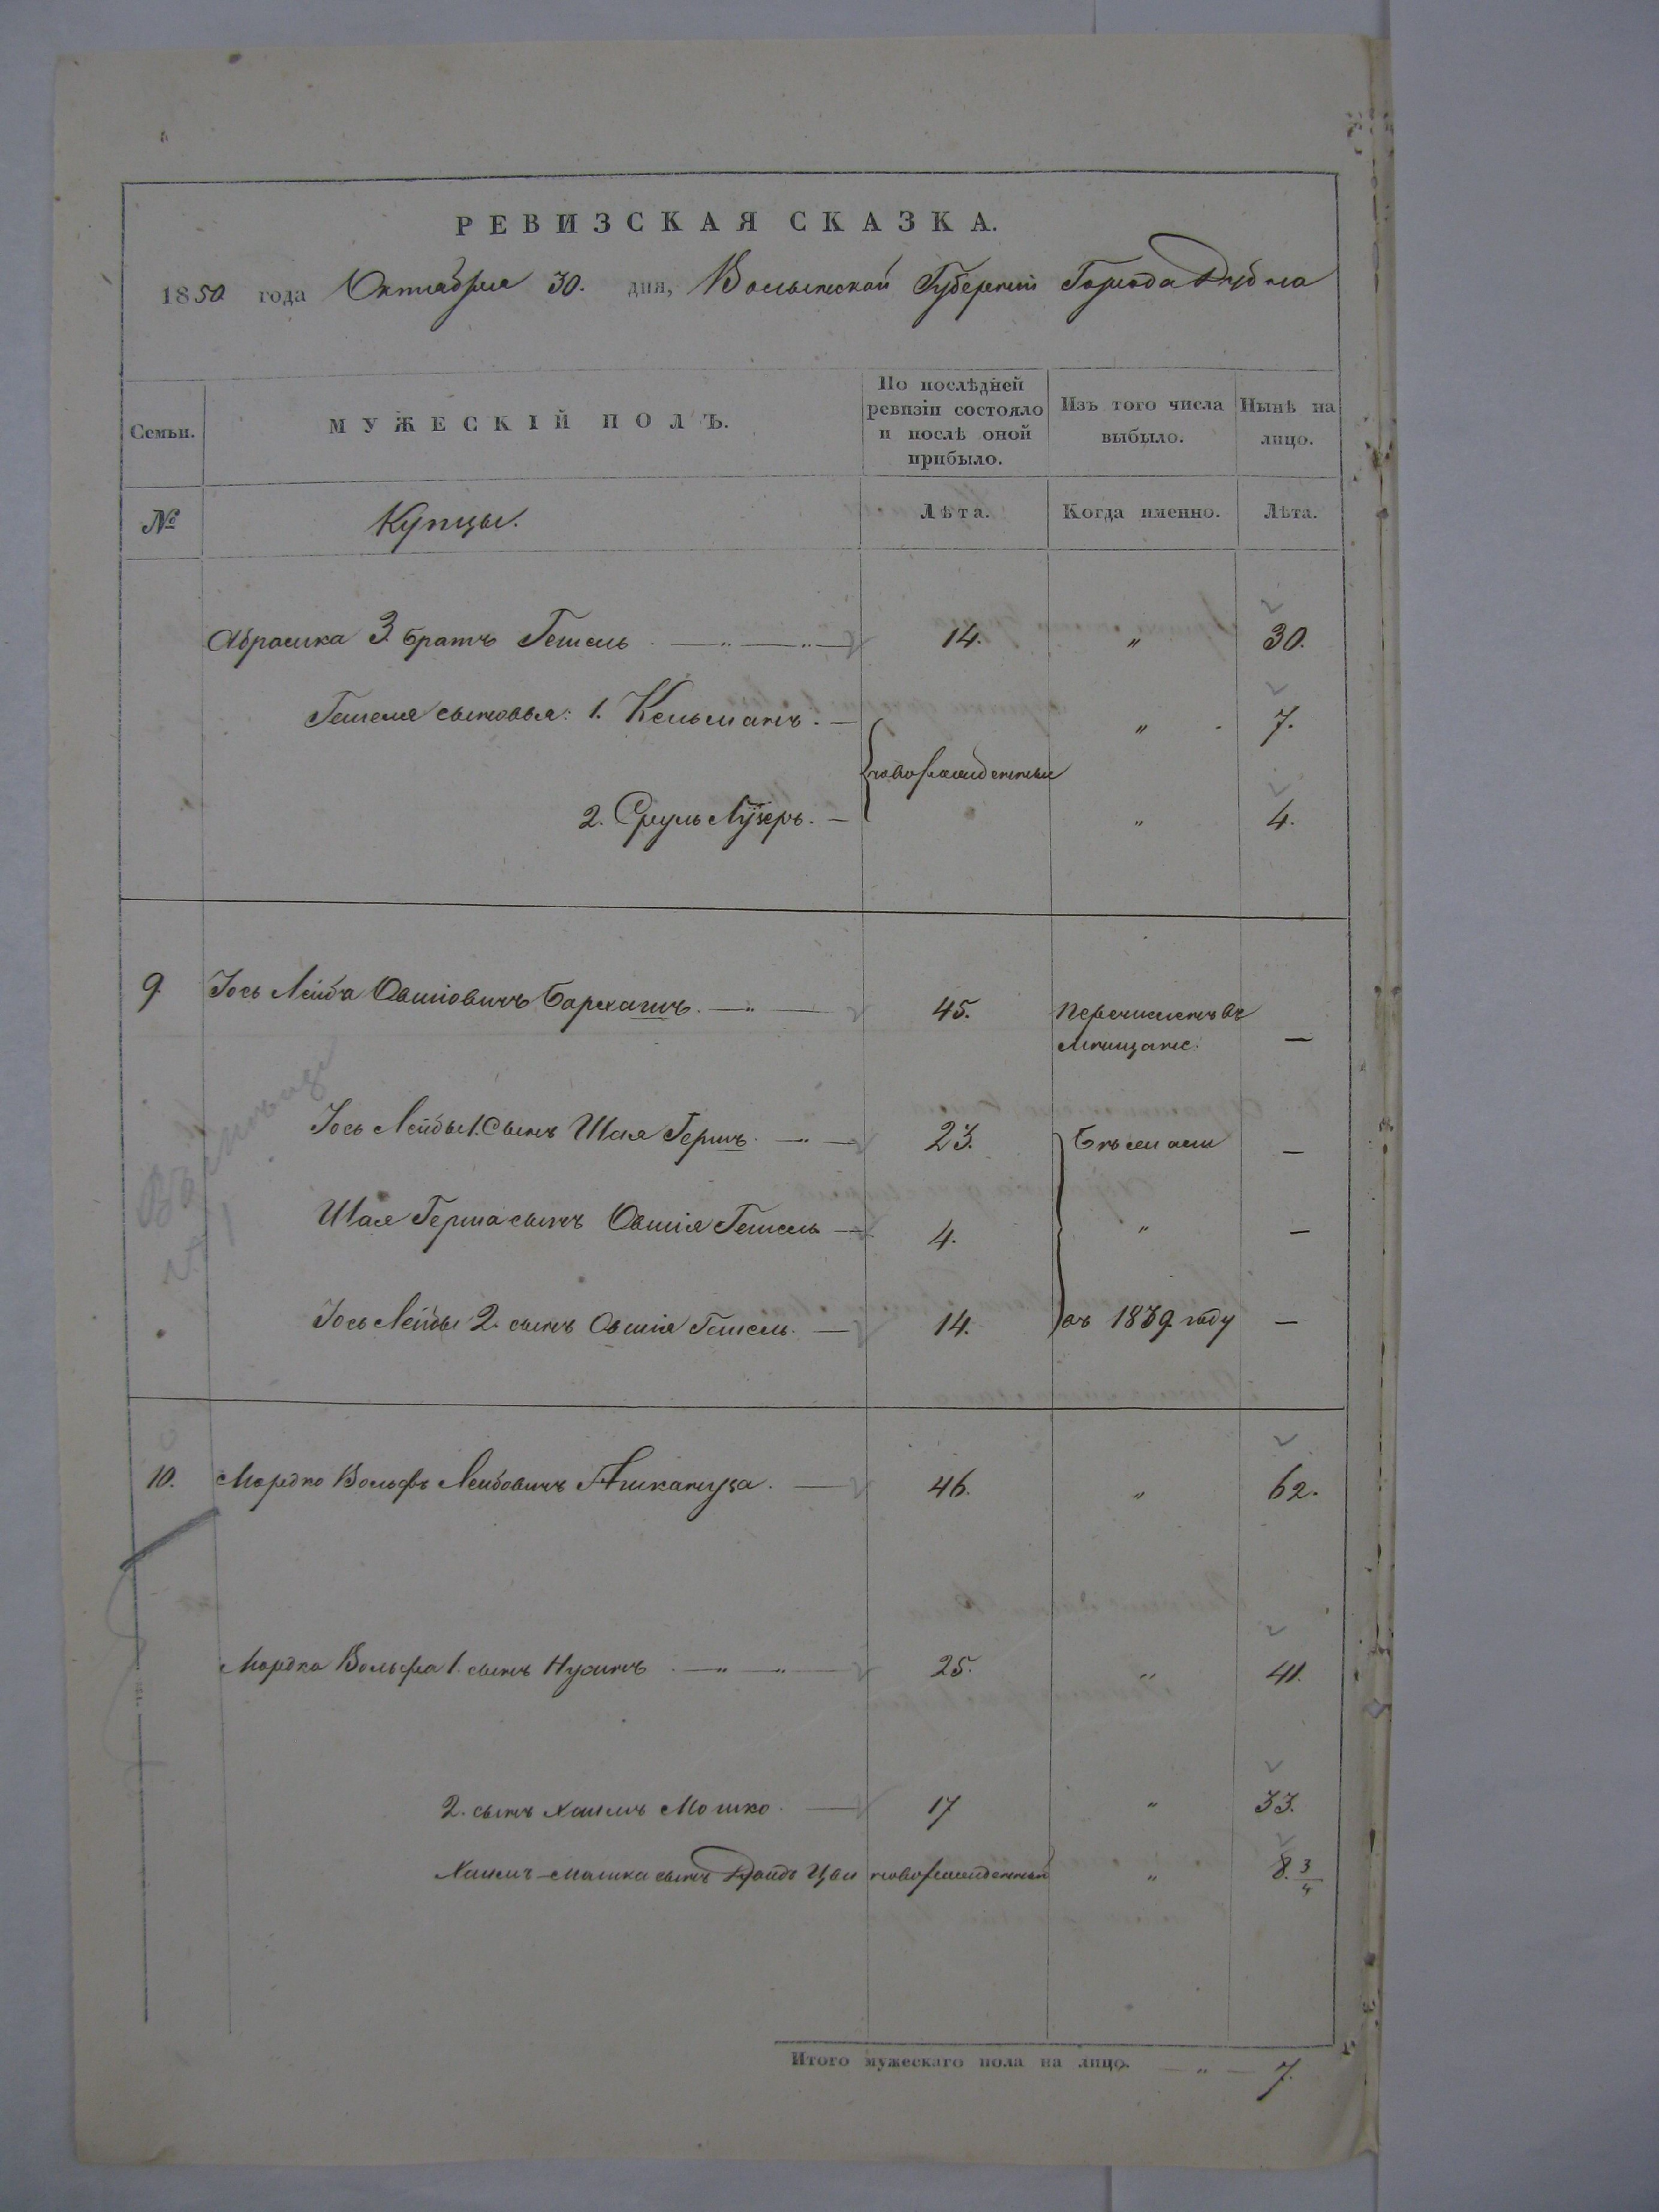 РЕВИЗСКАЯ СКАЗКА.
1850 года Октября 30. дня, Волынской Губернии Города Дубна
Семьи. МУЖЕСКІЙ ПОЛЪ. По послѣдней ревизіи состояло и послѣ оной прибыло. Изъ того числа выбыло. Нынѣ на лицо.
№ Купцы. Лѣта. Когда именно. Лѣта.
Абрамка 3. братъ Гешель 14. " 30.
Гешеля сыновья: 1. Кельманъ. " 7.
новорожденные
2. Сруль Лузеръ. " 4.
9 Іось Лейба Овшіовичъ 45. перечисленъ въ
мѣщане. —
Іось Лейбы 1. Сынъ Шая Гершъ. 23. —
Шая Герша сынъ Овшія Гешель 4. " —
Іось Лейбы 2. сынъ Овшія Гешель. 14. въ 1839 году —
10. Мордко Вольфъ Лейбовичъ Ашкануза. 46. " 62.
Мордка Вольфа 1. сынъ Нусинъ 25. " 41.
2. сынъ Хаимъ Мошко. 17 " 33.
Хаимъ-Мошка сынъ Дувидъ Цви новорожденный " 8. 3/4
Итого мужескаго пола на лицо. — " — 7.